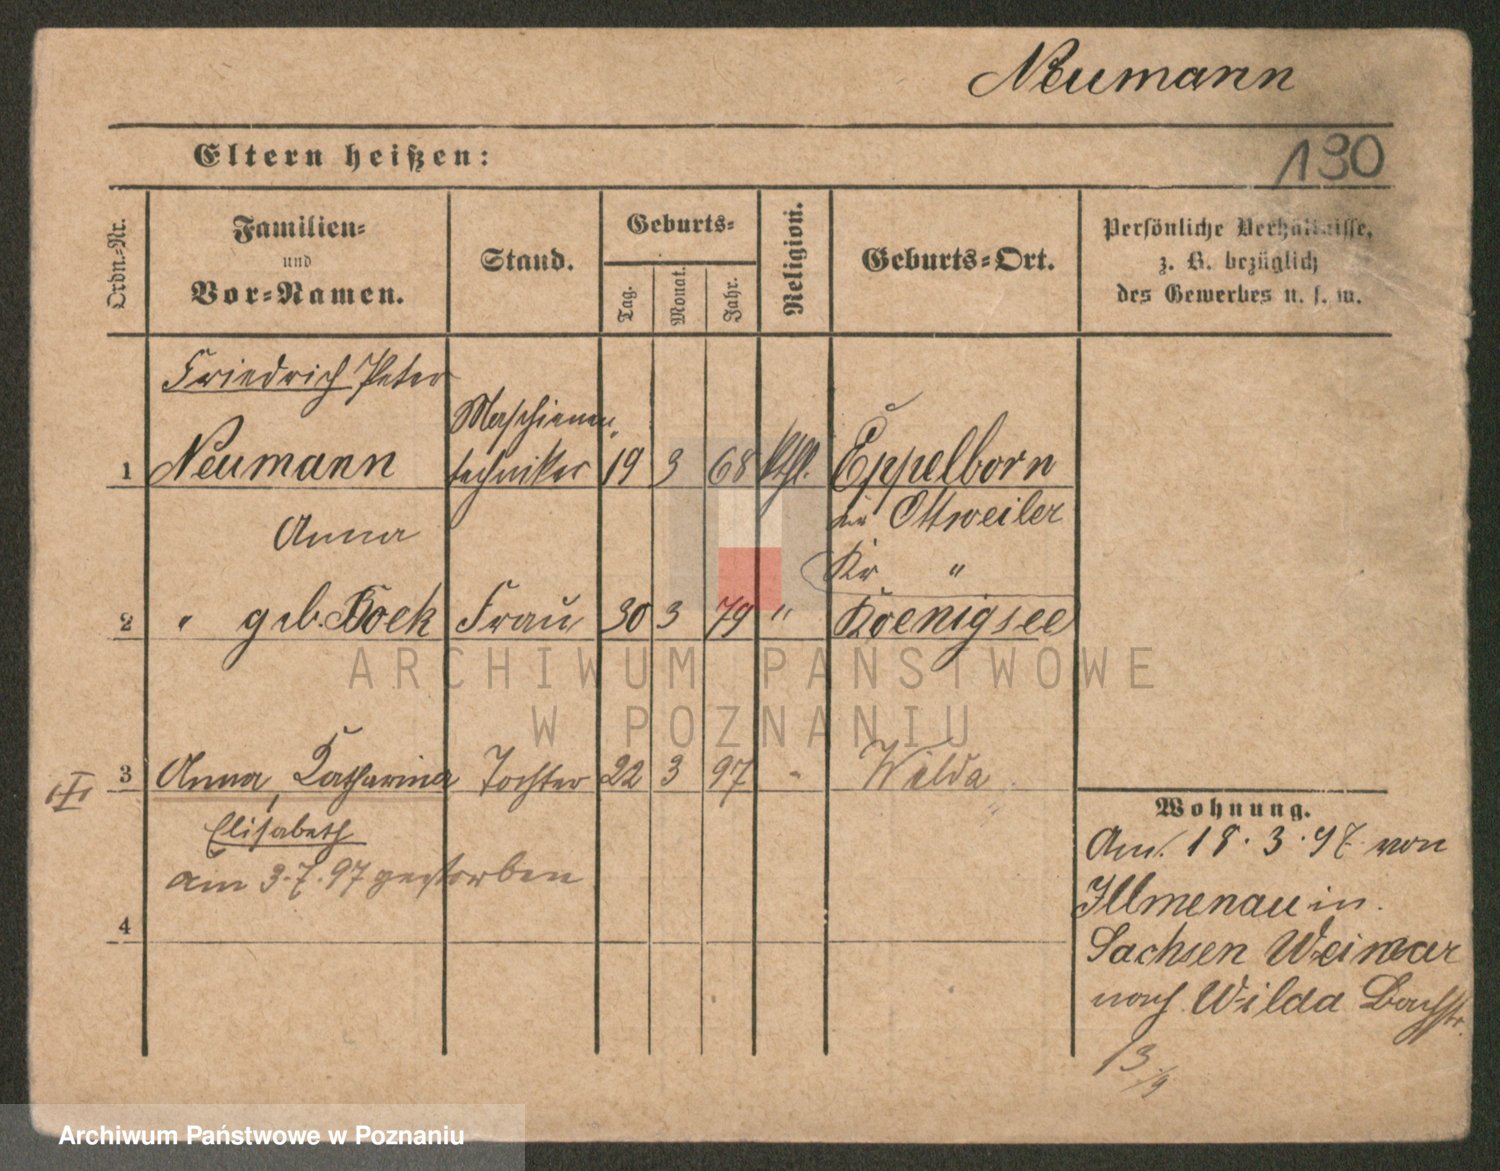 Neumann
130
Eltern heißen:
Ordn.-Nr.
Familien-
und
Vor-Namen.
Stand.
Geburts-
Tag.
Monat.
Jahr.
Religion.
Geburts-Ort.
Persönliche Verhältnisse,
z. B. bezüglich
des Gewerbes u. s. w.
Friedrich Peter
1 Neumann
Maschienen
techniker
19 3 68 kthl.
Eppelborn
Ottweiler
Kr "
Anna
2 " geb. Boek Frau 30 3 79 " Koenigsee
ARCHIWUM PAŃSTWOWE
W POZNANIU
3 Anna, Katharina Tochter 22 3 97 " Wilda
Elisabeth
am 3.7.97 gestorben
4
Wohnung.
Am. 18.3.97 von
Illmenau in
Sachsen Weimar
nach Wilda Bachstr.
13
Archiwum Państwowe w Poznaniu